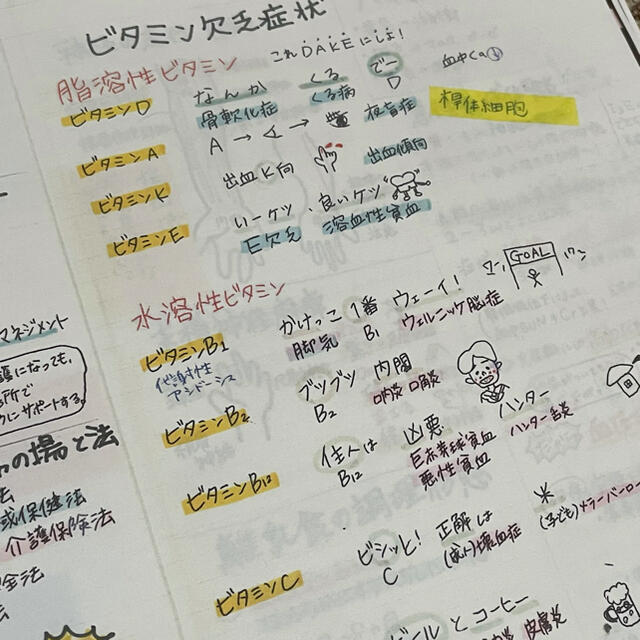 ビタミン欠乏症状
これDAKEにしよ!
脂溶性ビタミン
ビタミンD
なんか くる でー
骨軟化症 くる病 D
血中Ca
ビタミンA
A → → 夜盲症
桿体細胞
ビタミンK
出血K向 出血傾向
ビタミンE
いーケツ 良いケツ
E欠乏 溶血性貧血
水溶性ビタミン
ビタミンB1
かけっこ 1番 ウェーイ!
脚気 B1 ウェルニッケ脳症
GOAL
代謝性
アシドーシス
ビタミンB2
ブツブツ 内閣
B2 口内炎 口角炎
ビタミンB12
住人は 凶悪 ハンター
B12 巨赤芽球貧血 ハンター舌炎
悪性貧血
ビタミンC
ビシッと! 正解は
C (成人)壊血症
(子ども)メラーバーロー
ビール と コーヒー
皮膚炎
マネジメント
護になっても、
場所で
サポートする。
の場と法
保健法
介護保険法